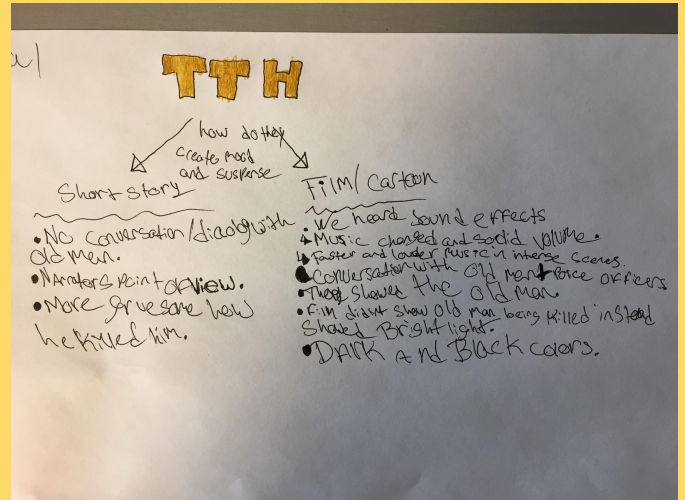 al
TTH
how do they
create mood
and suspense
Short story
• No conversation/dialog with
old man.
• Narrators Point of view.
• More gruesome how
he killed him.
Film/Cartoon
• We heard sound effects
Music changed and so did volume.
Faster and louder music in intense scenes.
• Conversation with old man + Police officers
• They showed the old man.
• Film didnt show old man being killed instead
showed Bright light.
• DARK And Black colors.